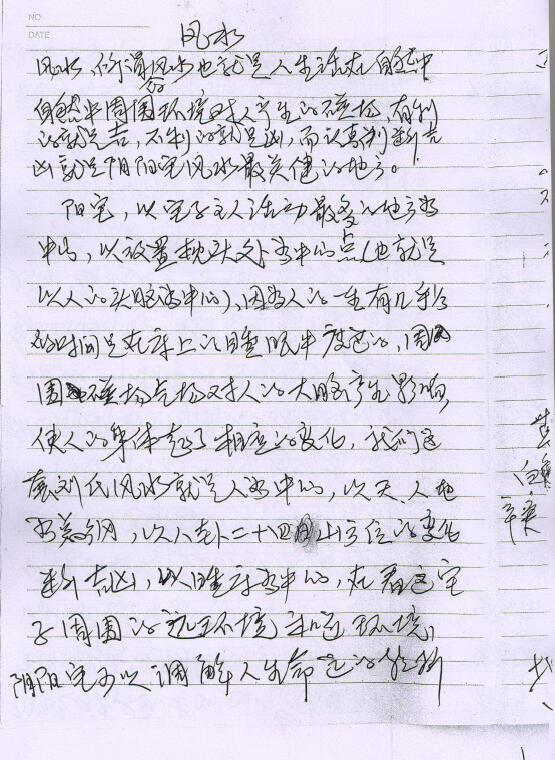 NO
DATE
风水
风水，所谓风水也就是人生活在自然中
自然界周围环境对人产生的磁场，有利
的就是吉，不利的就是凶，而认真判断吉
凶就是阴阳宅风水最关健的地方。
阳宅，以宅子主人活动最多的地方为
中心，以放置枕头处为中心点（也就是
以人的头脑为中心），因为人的一生有几乎
的时间是在床上的睡眠中度过的，周
围磁场气场对人的大脑产生影响，
使人的身体起了相应的变化，我们
刘氏风水就是人为中心，以天、人、地
为纲，以八卦二十四山方位的变化
断吉凶，以睡床为中心，在看这宅
子周围的远环境和近环境，
阴阳宅可以调解人生命运的